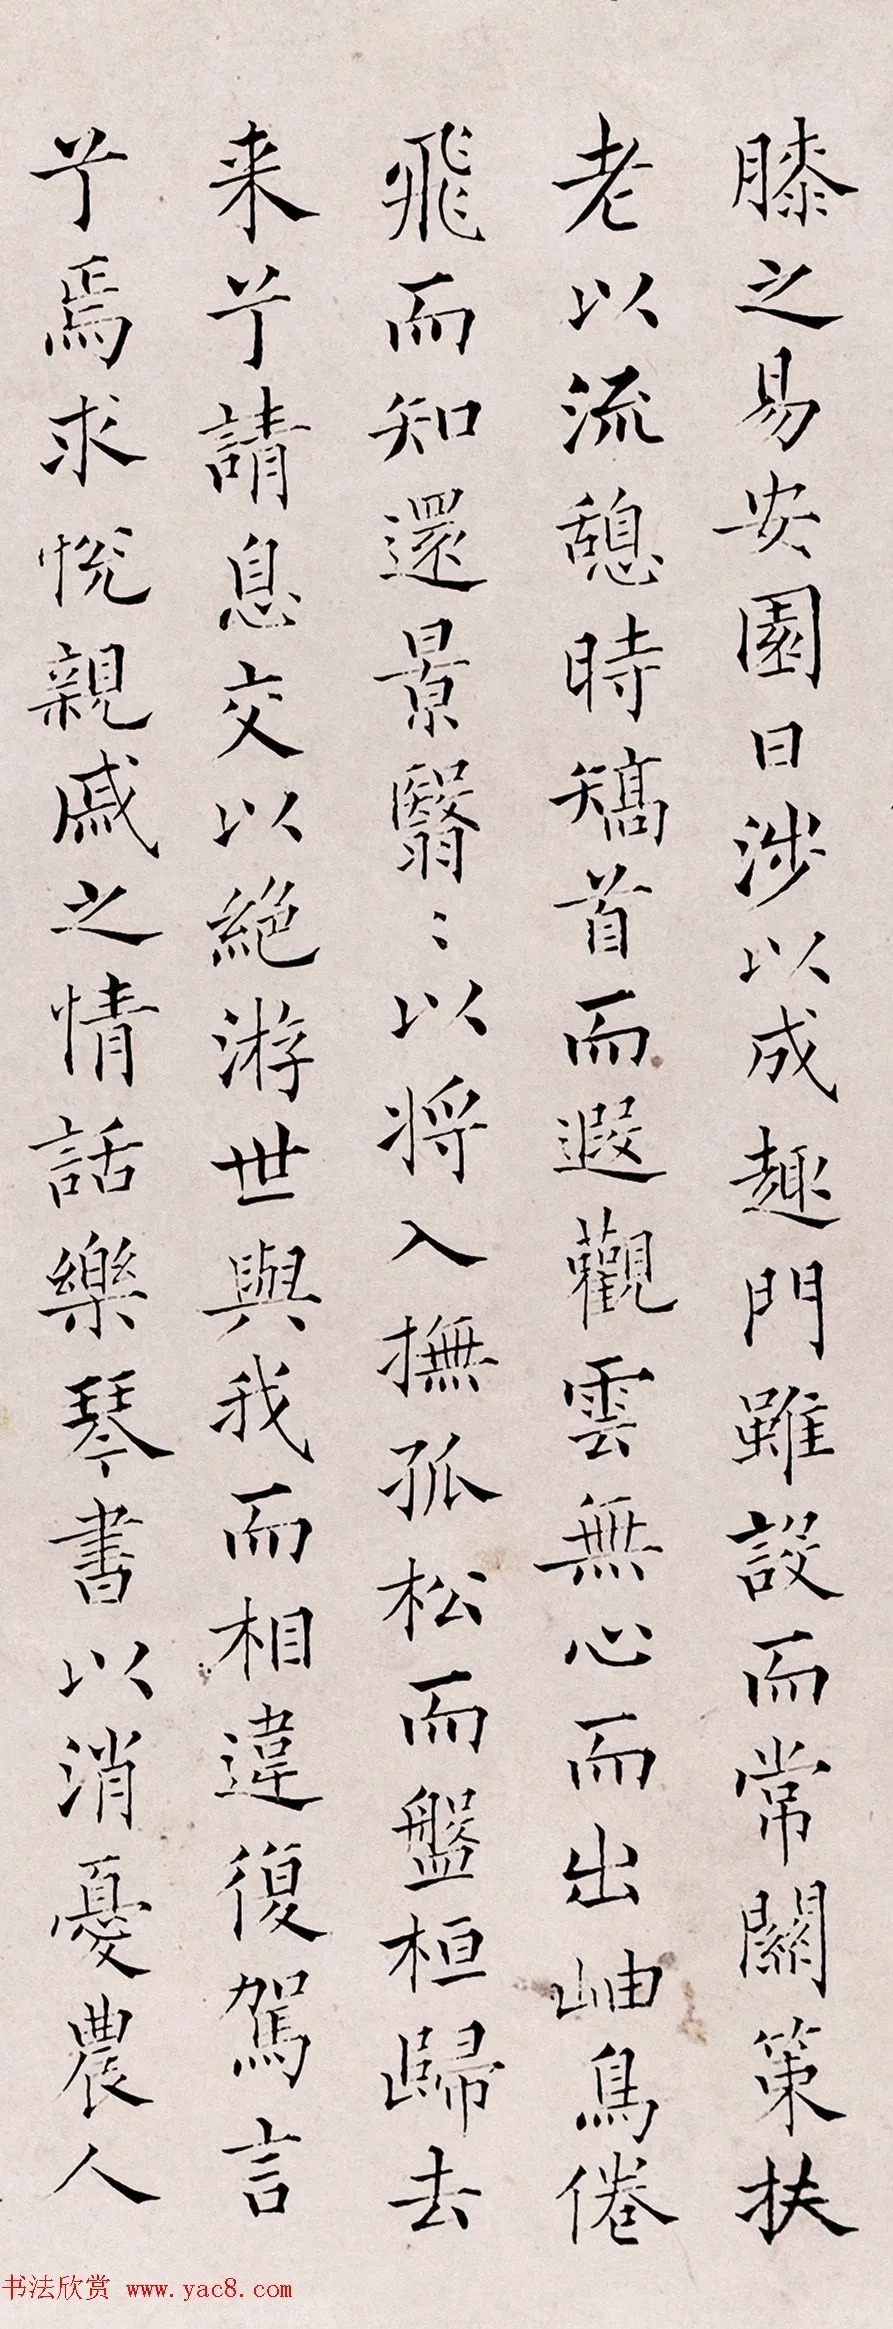 膝之易安園日涉以成趣門雖設而常關策扶
老以流憩時矯首而遐觀雲無心而出岫鳥倦
飛而知還景翳〻以將入撫孤松而盤桓歸去
来兮請息交以絶游世與我而相違復駕言
兮焉求悅親戚之情話樂琴書以消憂農人
书法欣赏 www.yac8.com